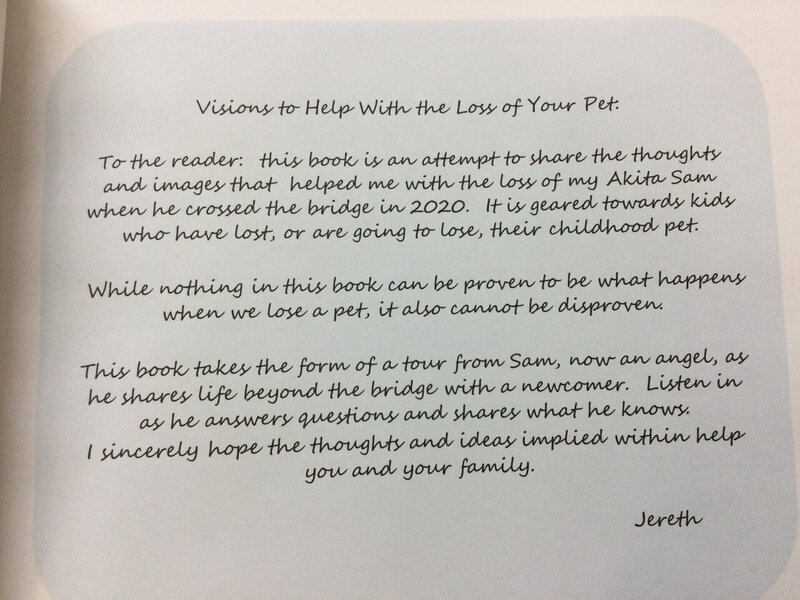 Visions to Help With the Loss of Your Pet:
To the reader:  this book is an attempt to share the thoughts
and images that  helped me with the loss of my Akita Sam
when he crossed the bridge in 2020.  It is geared towards kids
who have lost, or are going to lose, their childhood pet.
While nothing in this book can be proven to be what happens
when we lose a pet, it also cannot be disproven.
This book takes the form of a tour from Sam, now an angel, as
he shares life beyond the bridge with a newcomer.  Listen in
as he answers questions and shares what he knows.
I sincerely hope the thoughts and ideas implied within help
you and your family.
Jereth